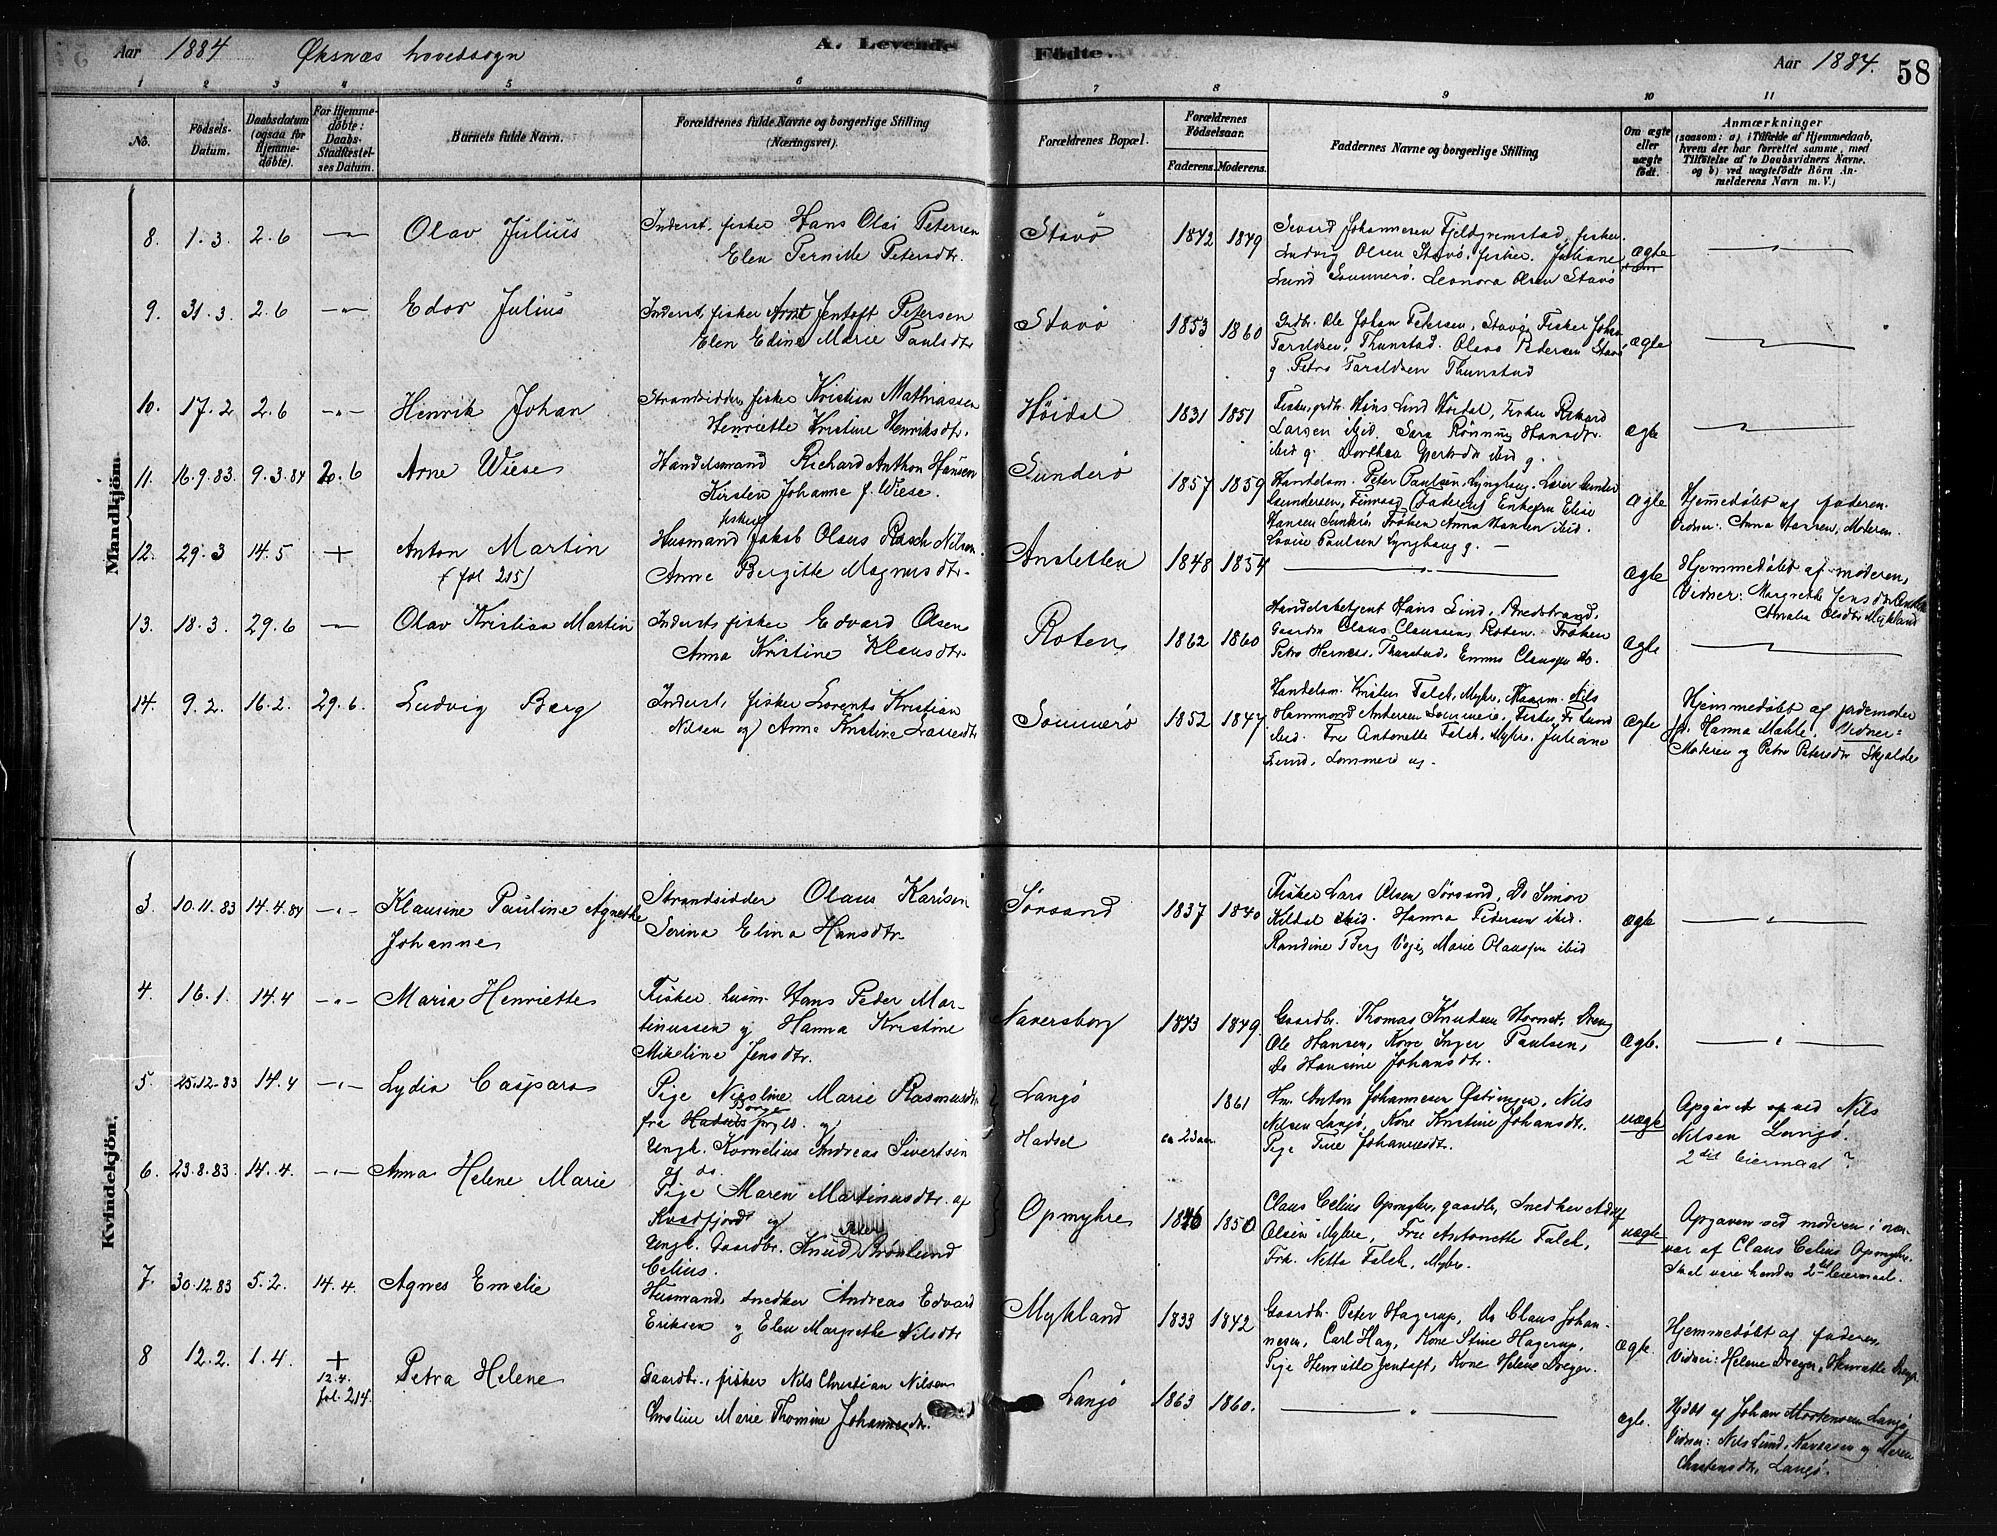 Aar 1884 Øksnæs hovedsogn A. Levende Födte. Aar 1884. 58
1 2 3 4 5 6 7 8 9 10 11
No. Födsels-Datum. Daabsdatum (ogsaa for Hjemme-döbte). For Hjemme-döbte: Daabs-Stadfæstel-ses Datum. Barnets fulde Navn. Forældrenes fulde Navne og borgerlige Stilling (Næringsvei). Forældrenes Bopæl. Forældrenes Födselsaar. Faderens. Moderens. Faddernes Navne og borgerlige Stilling Om ægte eller uægte födt. Anmærkninger
(saasom: a) i Tilfælde af Hjemmedaab,
hvem der har forrettet samme, med
Tilföielse af to Daabsvidners Navne.
og b) ved uægtefödte Börn An-
melderens Navn m. V.)
Mandkjön.
8. 1.3. 2.6 -"- Olav Julius
Inderst, fisker Hans Olai Petersen
Elen Pernille Petersdtr.
Stavø 1842 1849
Sivard Johannesen Fjeldgrimstad, fisker
Ludvig Olsen Stavø, fisker. Juliane
Lund Sommerø. Leonora Olsen Stavø
ægte
9. 31.3. 2.6 -"- Edor Julius
Inderst, fisker Arnt Jentoft Petersen
Elen Edine Marie Paulsdtr
Stavø 1853 1860
Grdbr. Ole Johan Petersen, Stavø, Fisker Johan
Thunstad. Olava Pedersen Stavø
g Petra Thunstad
ægte
10. 17.2 2.6 -"- Henrik Johan
Strandsidder, fisker Kristian Mathiassen
Henriette Kristine Henriksdtr.
Høidal 1831 1851
Fisker, grdbr. Hans Lind Høidal, Fisker Rikard
Larsen ibid. Sara Rønning Hansdtr.
ibid g. Dorthea ibid g.
ægte
11. 16.9.83 9.3.84 2.6 Arne Wiese
Handelsmand Richard Anthon Hansen
Kirsten Johanne f. Wiese.
Sunderø 1857 1859
Handelsm. Peter Paulsen, Lynghaug. Lærer
Gundersen, Finvaag (faderen) Enkefru Elise
Hansen Frøken Anna Hansen ibid.
Lovise Paulsen Lynghaug g. -
ægte
Hjemmedøbt af faderen.
Vidner: Anna Hansen, Moderen.
12. 29.3 14.5 + Anton Martin
(fol 215)
fisker
Husmand Jakob Olaus Rasch Nilsen
Anne Bergitte Magnusdtr.
Ansletten 1848 1854
ægte
Hjemmedøbt af moderen,
Vidner: Margrethe Jensdtr
Amalia Olsdtr Mykland
13. 18.3. 29.6 -"- Olav Kristian Martin
Inderst, fisker Edvard Olsen
Anna Kristine Klausdtr.
Roten 1862 1860
Handelsbetjent Hans Lind, Bredstrand,
Gaardm Claus Claussen, Roten. Frøken
Petra Hernes, Thunstad, Emma Claussen do.
ægte
14. 9.2. 16.2. 29.6. Ludvig Berg
Inderst, fisker Lorents Kristian
Nilsen og Anne Kristine
Sommerø 1852 1847
Handelsm. Kristen Falch, Myhre, Nils
Hammond Andersen Sommerø, Fisker Fr Lund
ibid. Fru Antonette Falch, Myhre, Juliane
Lund, Sommerø
ægte
Hjemmedøbt af jordemoder
fr. Hanna Mahle. Vidner:
Moderen og Petra Petersdtr Skjelde
Kvindekjön.
3 10.11.83 14.4.84 -"- Klausine Pauline Agnethe
Johanne
Strandsidder Olaus Karisen
Serina Elina Hansdtr.
Sørsand 1837 1840
Fisker Lars Olsen Sørsand, Do Simon
Kildal ibid. Hanna Pedersen ibid.
Randine Berg Veje, Marie Olaussen ibid
ægte
4. 16.1. 14.4 -"- Maria Henriette
Fisker, husm. Hans Peder Mar-
tinussen g Hanna Kristine
Mikeline Jensdtr.
Naversborg 1843 1849.
Gaardbr. Thomas Knudsen Hornet, Dreng
Ole Hansen, Kone Inger Paulsen,
Do Hansine Johansdtr.
ægte.
5. 25.12-83 14.4 -"- Lydia Caspara
Pige Nicoline Marie Rasmusdtr
fra Hadsels prgld. g
Ungk. Kornelius Andreas Sivertsen
af do.
Langø
Hadsel ca 23 aar 1861
Fm. Anton Johannesen Østringen, Nils
Nilsen Langø, Kone Kristine Johansdtr.
Pige Trine Johannesdtr.
uægte
Opgivet op ved Nils
Nilsen Langø.
2det leiermaal?
6. 23.8.83 14.4. -"- Anna Helene Marie
Pige Maren Martinusdtr. af
Kvædfjord g
Ungk. Gaardbr. Knud Brønlund
Celius.
Opmyhre 1846 1850
Claus Celius Opmyhre, gaardbr, Snedker Adolf
Olsen Myhre, Fru Antonette Falch,
Frk. Netta Falch, Myhre.
uægte
Opgaven ved moderen i nær-
vær af Claus Celius Opmyhre.
Skal være hendes 2det leiermaal.
7. 30.12.83 5.2. 14.4. Agnes Emelie
Husmand, snedker Andreas Edvard
Eriksen g Elen Margrethe Nilsdtr
Mykland 1833 1842
Gaardbr. Peter Hagerup, do Claus Johan-
nesen, Carl Hay, Kone Stine Hagerup,
Pige Henriette Jentoft, Kone Helene Dreyer.
ægte.
Hjemmedøbt af faderen,
Vidner: Helene Dreyer, Henriette
8 12.2. 1.4. + 12.4. fol. 214. Petra Helene
Gaardbr., fisker Nils Christian Nilsen
Christine Marie Thomine Johannesdtr.
Langø 1863 1860.
ægte.
Hjdbt af Johan Mortensen Langø
Vidner: Nils Lund, g Maren
Christensdtr, Langø.